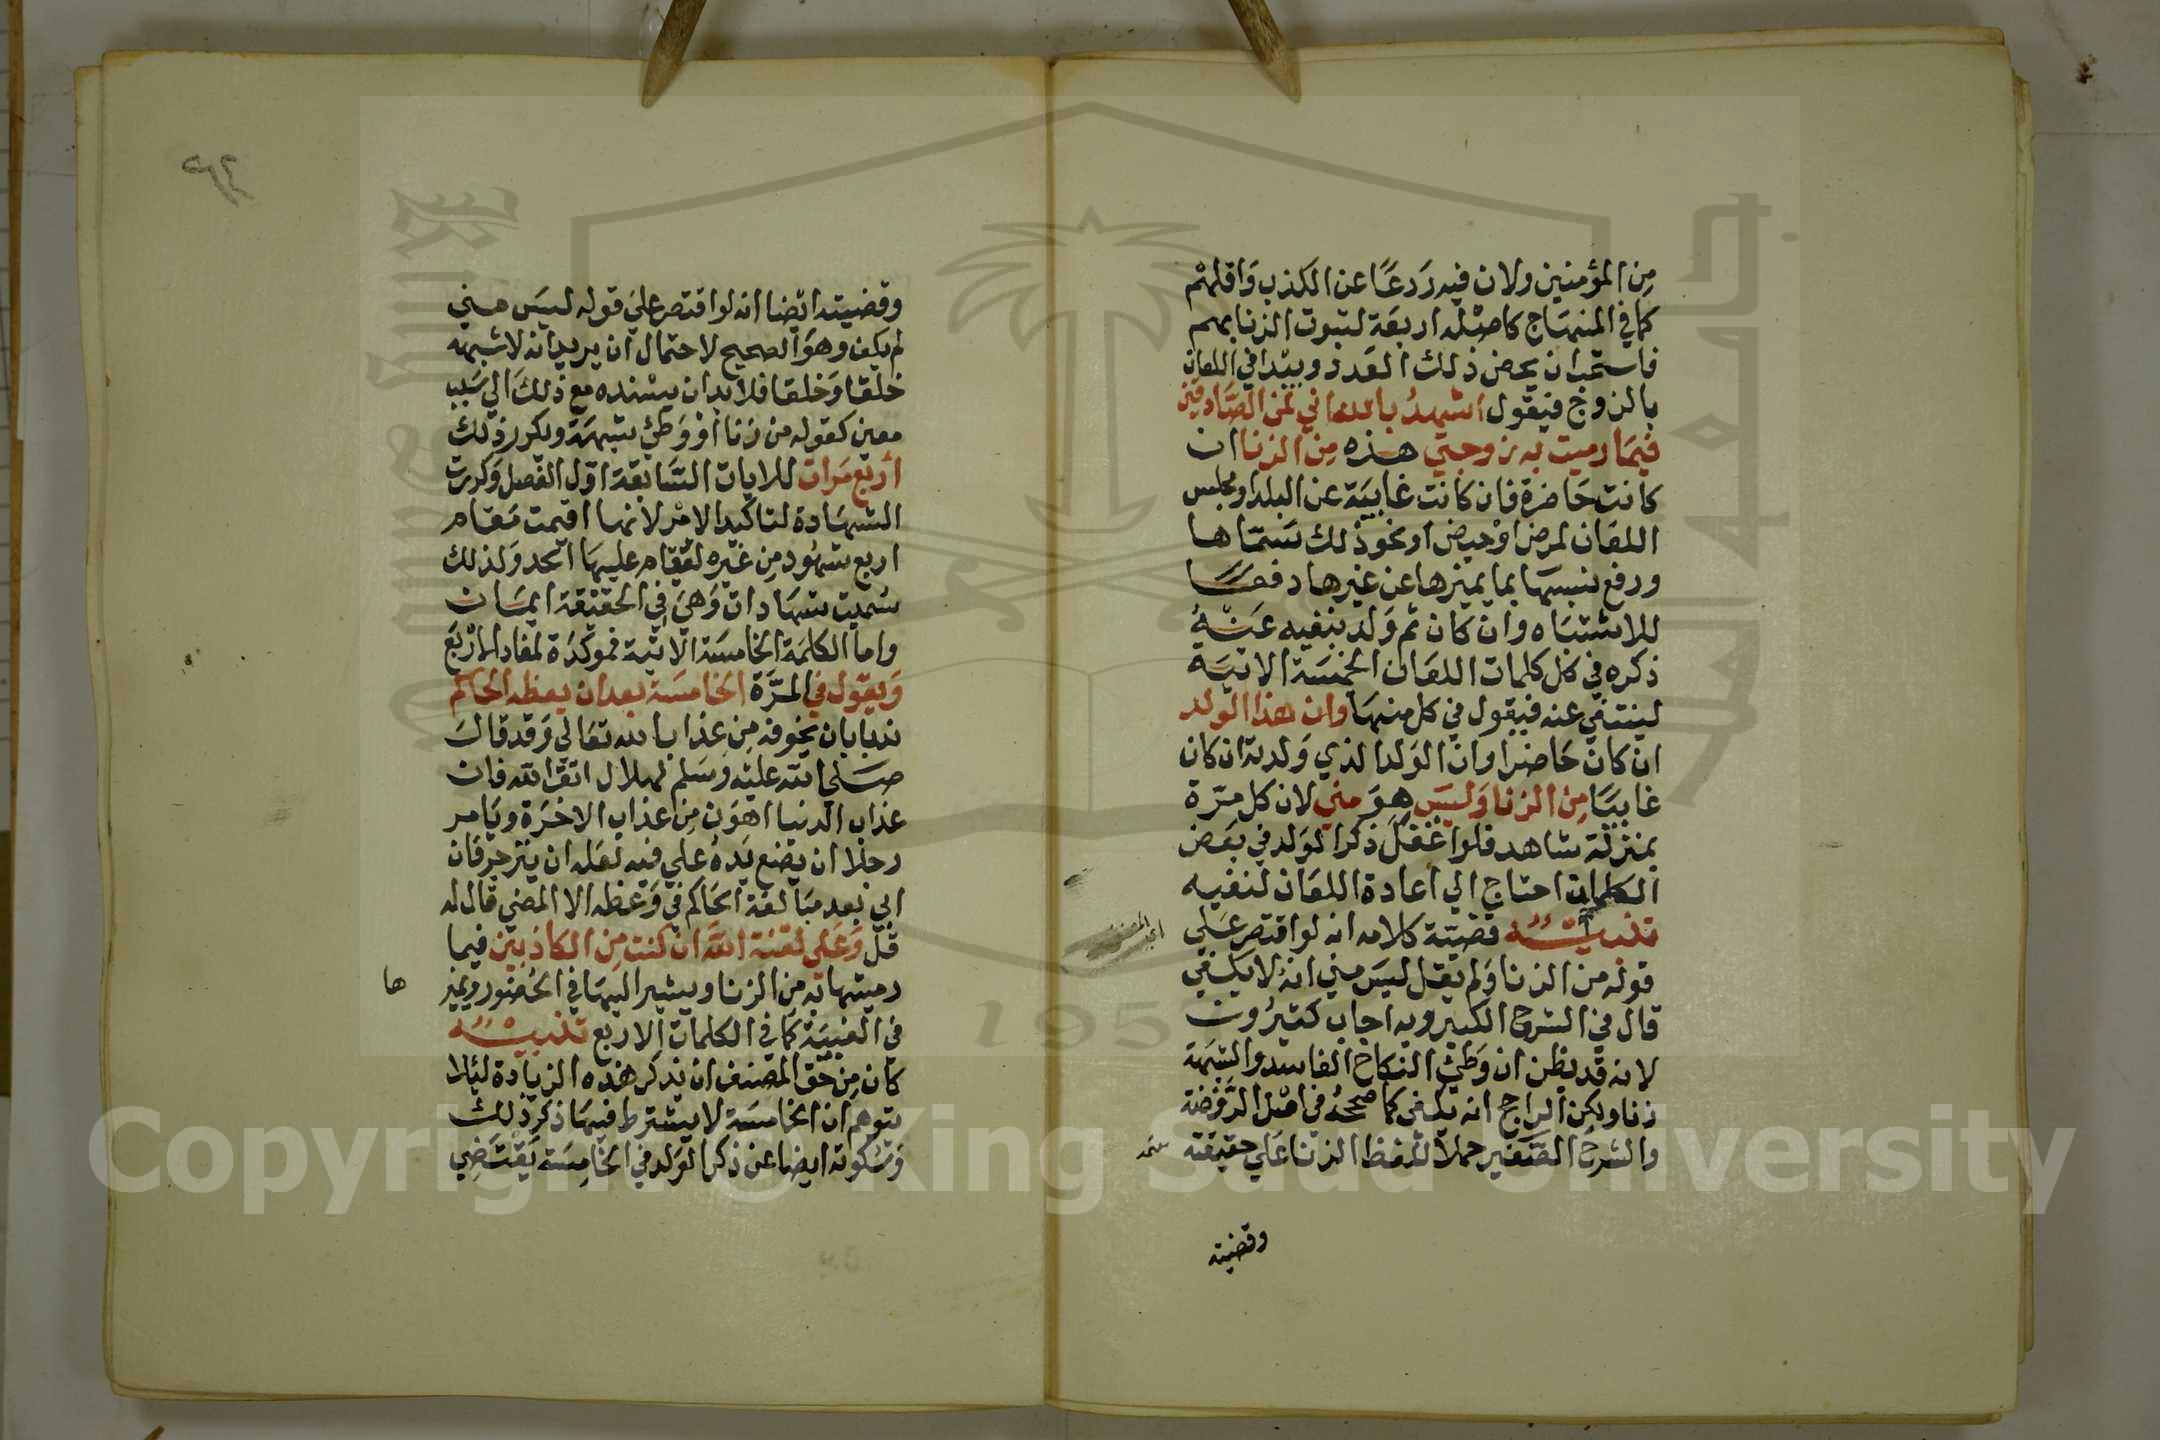 من المؤمنين ولان فيه ردعا عن الكذب واقلهم
كما في المنهاج كاصله اربعة لثبوت الزنا بهم
فاستحب ان يحضر ذلك العدد ويبدا في اللعان
بالزوج فيقول اشهد بالله اني لمن الصادقين
فيما رميت به زوجتي هذه من الزنا ان
كانت حاضرة فان كانت غايبة عن البلد او مجلس
اللعان لمرض او حيض او نحو ذلك سماها
ورفع نسبها بما يميزها عن غيرها دفعا
للاشتباه وان كان ثم ولد ينفيه عنه
ذكره في كل كلمات اللعان الخمسة الاتية
لينتفي عنه فيقول في كل منها وان هذا الولد
ان كان حاضرا وان الولد الذي ولدته ان كان
غايبا من الزنا وليس هو مني لان كل مرة
بمنزلة شاهد فلو اغفل ذكر الولد في بعض
الكلمات احتاج الي اعادة اللعان لنفيه
تنبيه قضية كلامه انه لو اقتصر علي
قوله من الزنا ولم يقل ليس مني انه لا يكفي
قال في الشرح الكبير وبه اجاب كثيرون
لانه قد يظن ان وطئ النكاح الفاسد والشبهة
زنا ولكن الراجح انه يكفي كما صححه في اصل الروضة
والشرح الصغير حملا للفظ الزنا علي حقيقته
وقضيته
وقضيته ايضا انه لو اقتصر علي قوله ليس مني
لم يكف وهو الصحيح لاحتمال ان يريد انه لا شبهه
خلقا وخلقا فلا بد ان يسنده مع ذلك الي سبب
معين كقوله من زنا او وطئ شبهة ويكرر ذلك
اربع مرات للايات السابقة اول الفصل وكررت
الشهادة لتاكيد الامر لانها اقيمت مقام
اربع شهود من غيره لتقام عليها الحد ولذلك
سميت شهادات وهي في الحقيقة ايمان
واما الكلمة الخامسة الاتية فموكدة لمفاد الاربع
ويقول في المرة الخامسة بعد ان يعظه الحاكم
ندبا بان يخوفه من عذاب الله تعالي وقد قال
صلي الله عليه وسلم لهلال اتق الله فان
عذاب الدنيا اهون من عذاب الاخرة ويامر
رجلا ان يضع يده علي فيه لعله ان ينزجر فان
ابي بعد مبالغة الحاكم في وعظه الا المضي قال له
قل وعلي لعنة الله ان كنت من الكاذبين فيما
رميتها به من الزنا ويشير اليها في الحضور ويميز
ها
في الغيبة كما في الكلمات الاربع تنبيه
كان من حق المصنف ان يذكر هذه الزيادة ليلا
يتوهم ان الخامسة لا يشترط فيها ذكر ذلك
وسكوته ايضا عن ذكر الولد في الخامسة يقتضي
Copyright © King Saud University
1957